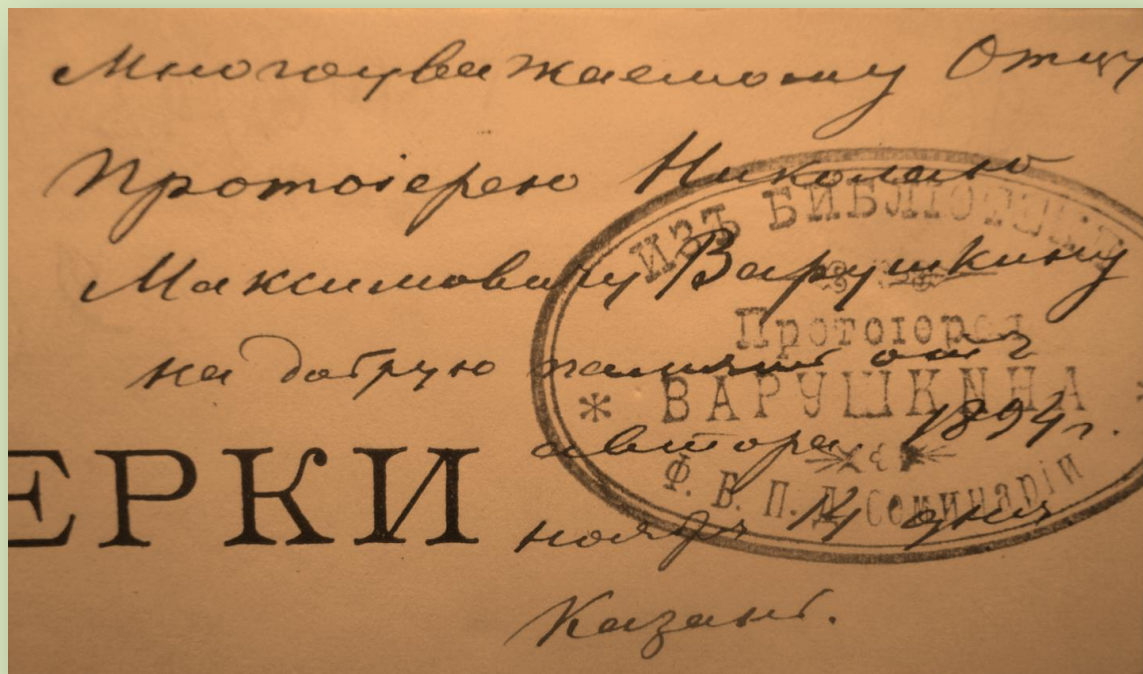 Многоуважаемому Отцу
Протоіерею Николаю
Максимовичу Варушкину
на добрую память отъ
автора 1894 г.
ноября 14 дня
Казань.
ЕРКИ
ИЗЪ БИБЛІОТЕКИ
Протоіерея
ВАРУШКИНА
Ф. В. П. Д. Семинаріи